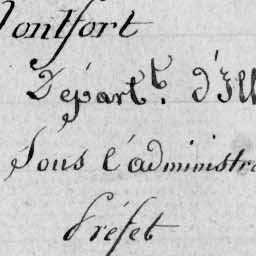 Montfort
Départ.t d'Ill
Sous l'administra
Préfet